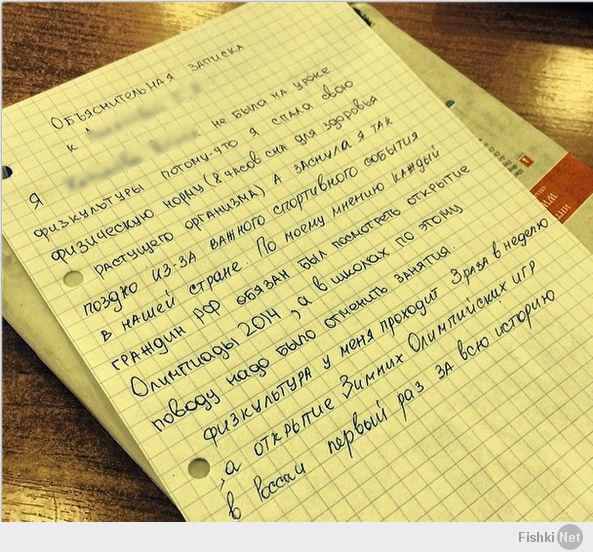 Объяснительная записка
к
Я не была на уроке
физкультуры потому-что я спала свою
физическую норму (8 часов сна для здоровья
растущего организма) а заснула я так
поздно из-за важного спортивного события
в нашей стране. По моему мнению каждый
граждин РФ обязан был посмотреть открытие
Олимпиады 2014, а в школах по этому
поводу надо было отменить занятия.
Физкультура у меня проходит 3 раза в неделю
, а открытие Зимних Олимпийских игр
в России первый раз за всю историю
Fishki Net